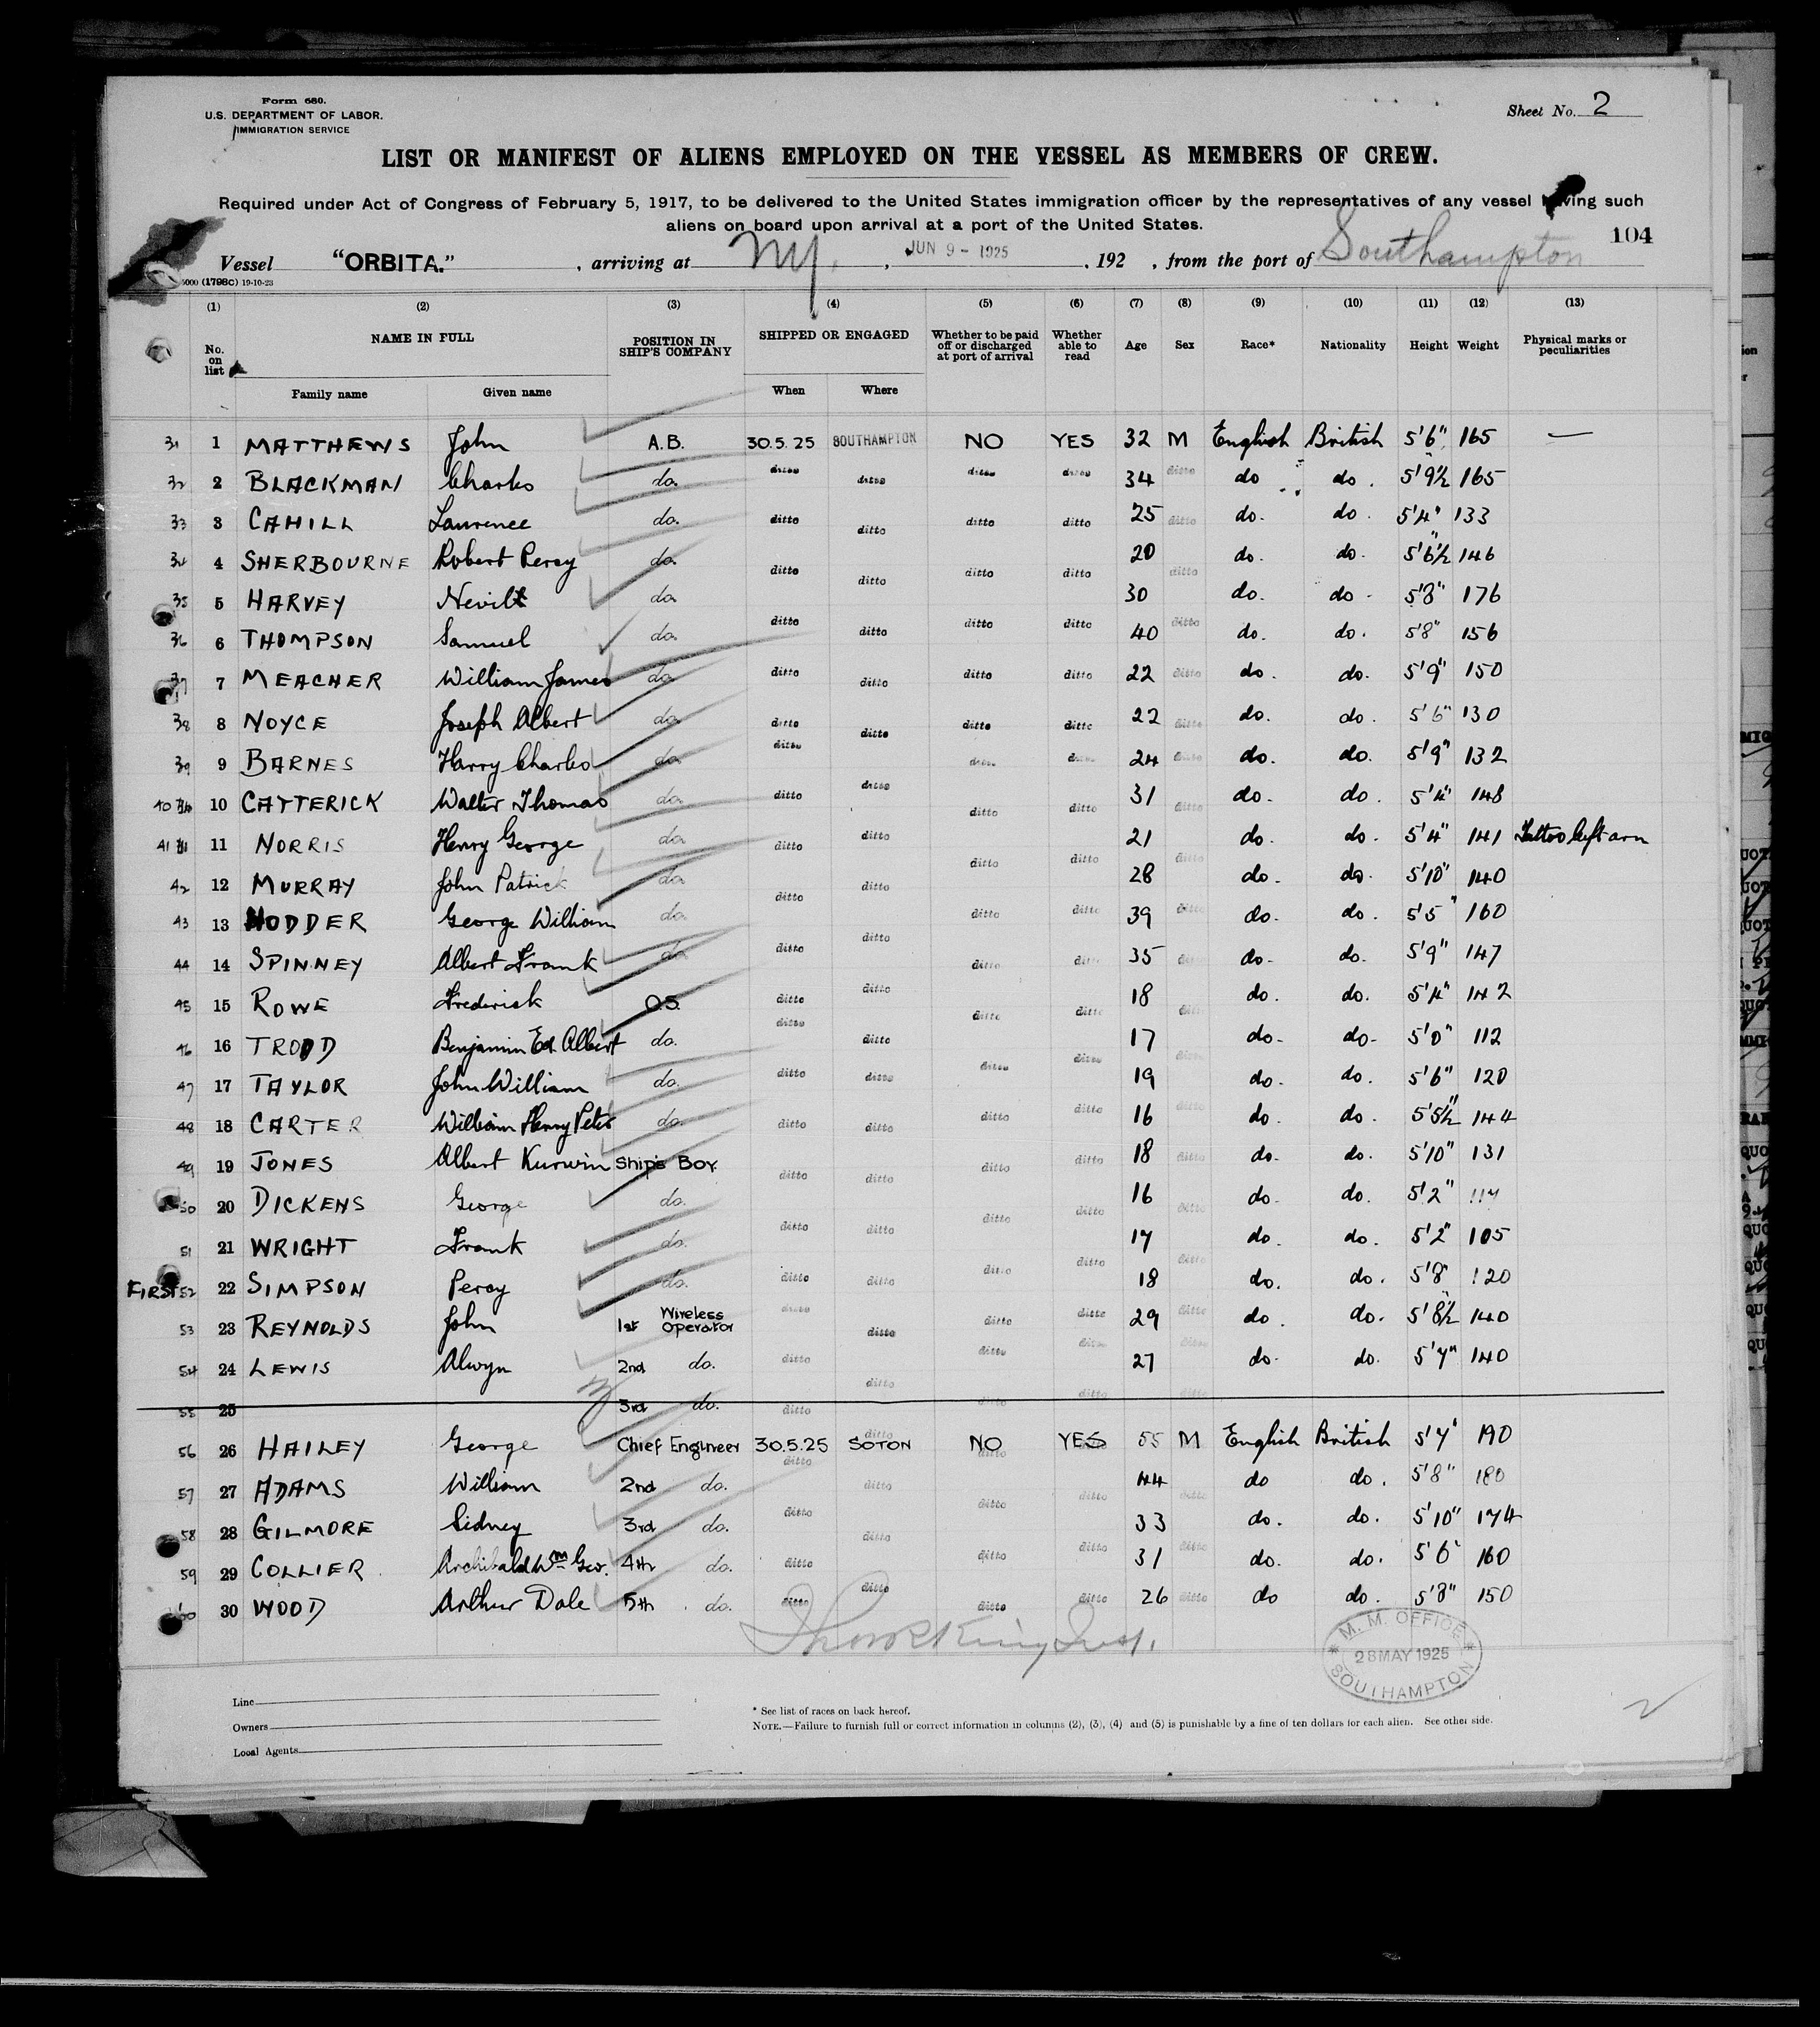 Form 680.
U.S. DEPARTMENT OF LABOR.
IMMIGRATION SERVICE
Sheet No. 2
LIST OR MANIFEST OF ALIENS EMPLOYED ON THE VESSEL AS MEMBERS OF CREW.
Required under Act of Congress of February 5, 1917, to be delivered to the United States immigration officer by the representatives of any vessel having such
aliens on board upon arrival at a port of the United States.
104
Vessel "ORBITA." , arriving at NY. , JUN 9 - 1925 , 192 , from the port of Southampton
5000 (1798c) 19-10-23
(1) (2) (3) (4) (5) (6) (7) (8) (9) (10) (11) (12) (13)
No. on list NAME IN FULL POSITION IN SHIP'S COMPANY SHIPPED OR ENGAGED Whether to be paid off or discharged at port of arrival Whether able to read Age Sex Race* Nationality Height Weight Physical marks or peculiarities
Family name Given name When Where
31 1 MATTHEWS John A.B. 30.5.25 SOUTHAMPTON NO YES 32 M English British 5'6" 165 —
32 2 BLACKMAN Charles do. ditto ditto ditto ditto 34 ditto do do. 5'9½ 165
33 3 CAHILL Laurence do. ditto ditto ditto ditto 25 ditto do. do. 5'4" 133
34 4 SHERBOURNE Robert Percy do. ditto ditto ditto ditto 20 ditto do. do. 5'6½" 146
35 5 HARVEY do. 30 do. do. 5'8" 176
36 6 THOMPSON Samuel do. ditto ditto ditto ditto 40 ditto do. do. 5'8" 156
37 7 MEACHER William James do. ditto ditto ditto ditto 22 ditto do. do. 5'9" 150
38 8 NOYCE Joseph Albert do. ditto ditto ditto ditto 22 ditto do. do. 5'6" 130
39 9 BARNES Harry Charles do. ditto ditto ditto 24 ditto do. do. 5'9" 132
40 10 CATTERICK Walter Thomas do. ditto ditto ditto ditto 31 ditto do. do. 5'4" 148
41 11 NORRIS Henry George do. ditto ditto ditto ditto 21 ditto do. do. 5'4" 141 Tattoo left arm
42 12 MURRAY John Patrick do. ditto ditto 28 do. do. 5'10" 140
43 13 HODDER George William do. ditto ditto ditto 39 ditto do. do. 5'5" 160
44 14 SPINNEY Albert Frank do. ditto ditto ditto 35 do. do. 5'9" 147
45 15 ROWE Frederick O.S. ditto ditto ditto ditto 18 do. do. 5'4" 142
46 16 TRODD Benjamin Ed. Albert do. ditto ditto ditto ditto 17 ditto do. do. 5'0" 112
47 17 TAYLOR John William do. ditto ditto 19 do. do. 5'6" 120
48 18 CARTER William Henry Peter do. ditto ditto ditto ditto 16 ditto do. do. 5'5½" 144
49 19 JONES Albert Ship's Boy. ditto ditto ditto ditto 18 ditto do. do. 5'10" 131
50 20 DICKENS George do. ditto ditto 16 ditto do. do. 5'2"
51 21 WRIGHT Frank do. ditto ditto ditto ditto 17 ditto do. do. 5'2" 105
FIRST 52 22 SIMPSON Percy do. ditto ditto ditto 18 do. do. 5'8" 120
53 23 REYNOLDS John 1st Wireless Operator ditto ditto ditto ditto 29 ditto do. do. 5'8½" 140
54 24 LEWIS Alwyn 2nd do. ditto ditto ditto ditto 27 ditto do. do. 5'7" 140
55 25 3rd do. ditto ditto ditto
56 26 HAILEY George Chief Engineer 30.5.25 SOTON NO YES 55 M English British 5'7" 190
57 27 ADAMS William 2nd do. ditto ditto ditto ditto 44 ditto do do. 5'8" 180
58 28 GILMORE Sidney 3rd do. ditto ditto ditto 33 do. do. 5'10" 174
59 29 COLLIER Archibald Wm Geo. 4th do. ditto ditto ditto 31 ditto do. do. 5'6" 160
60 30 WOOD Arthur Dale 5th do. ditto ditto ditto ditto 26 ditto do do. 5'8" 150
M. M. OFFICE
28 MAY 1925
SOUTHAMPTON
Line
Owners
Local Agents
* See list of races on back hereof.
NOTE.—Failure to furnish full or correct information in columns (2), (3), (4) and (5) is punishable by a fine of ten dollars for each alien. See other side.